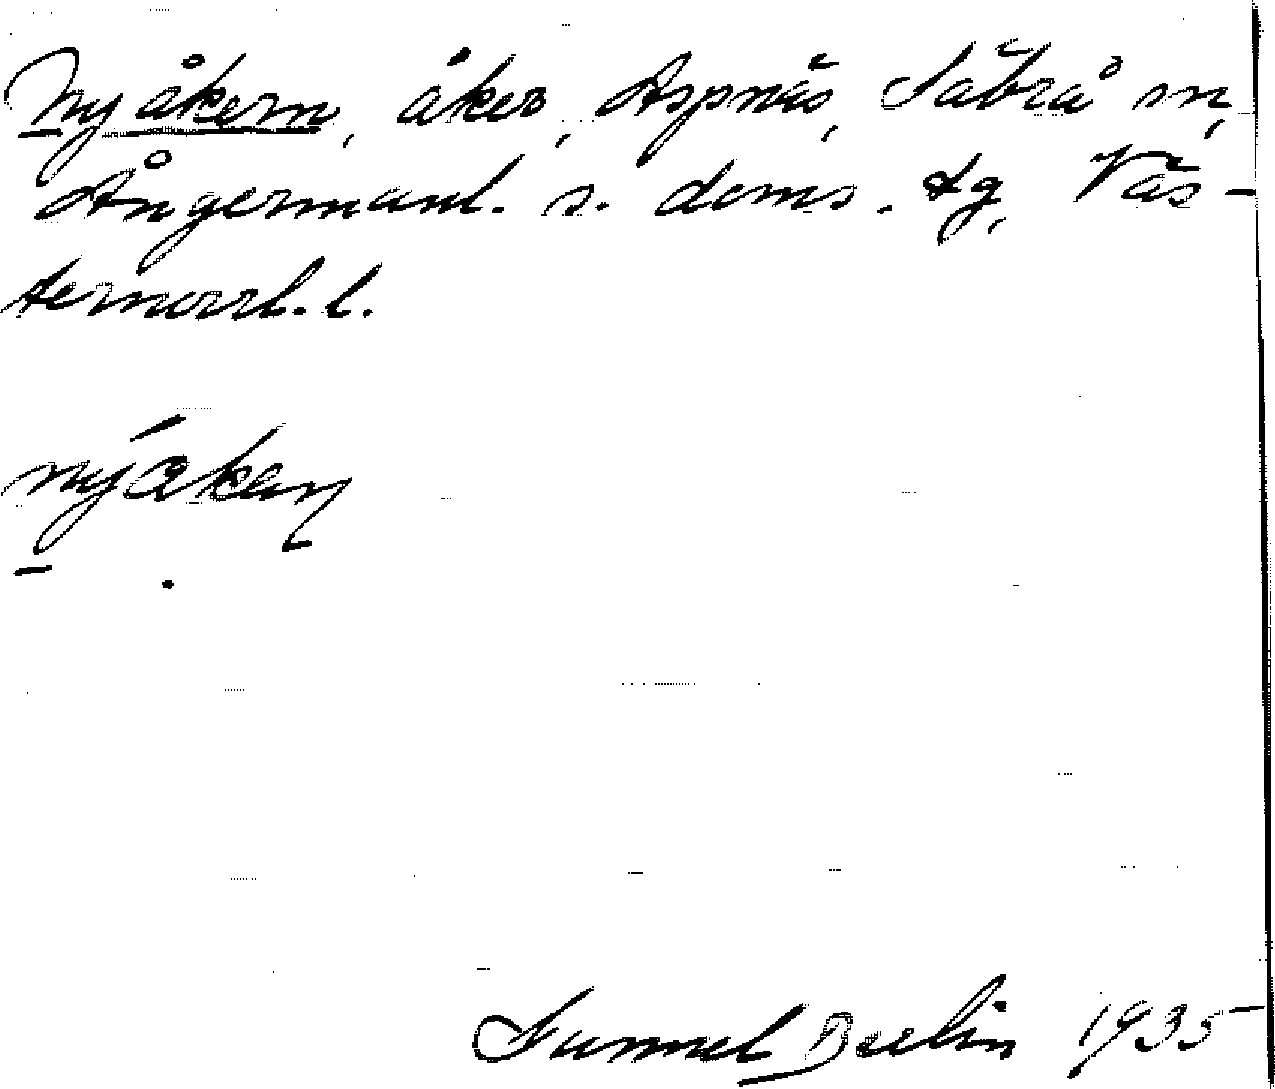 Nyåkern, åker, Aspnäs, Säbrå sn,
Ångermanl. s. doms. tg, Väs-
ternorrl. l.
nyákeɳ
Gunnel Beelin 1935